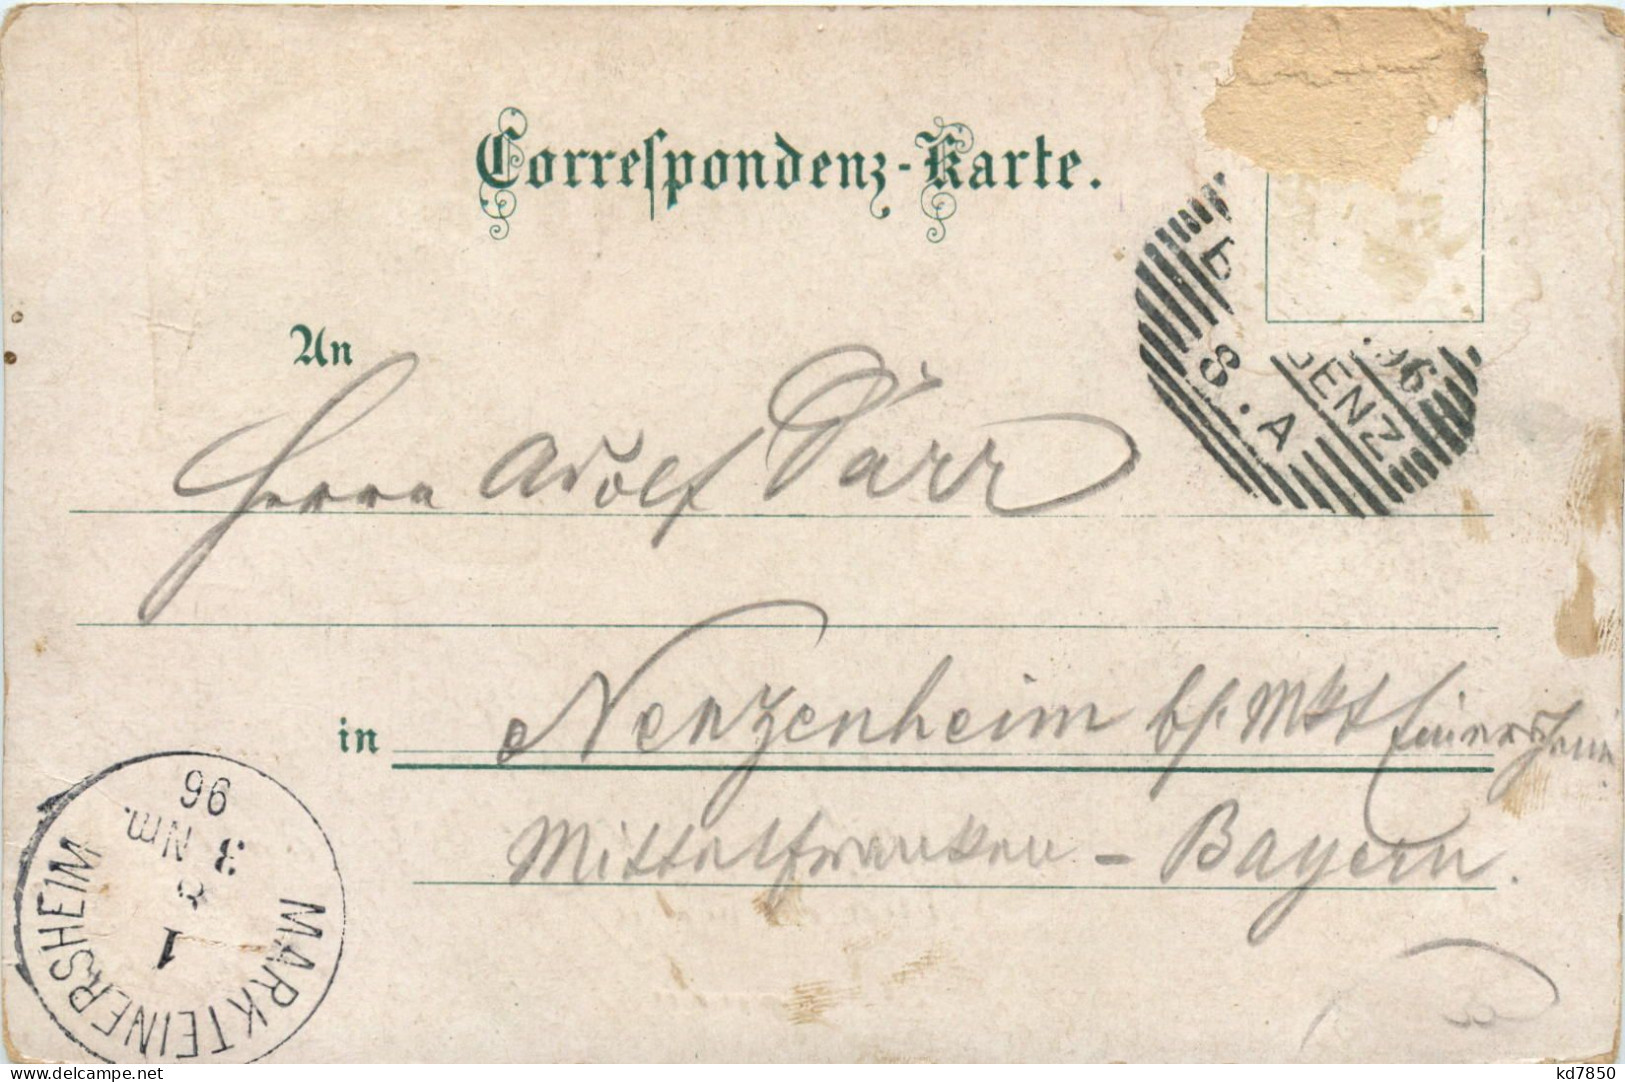 Correspondenz-Karte.
An
Herrn Adolf Dürr
in Nenzenheim b/. Mkt Einersheim
Mittelfranken - Bayern.
S.A
96
DENZ
MARKTEINERSHEIM
1
3 Nm.
96
www.delcampe.net
kd7850